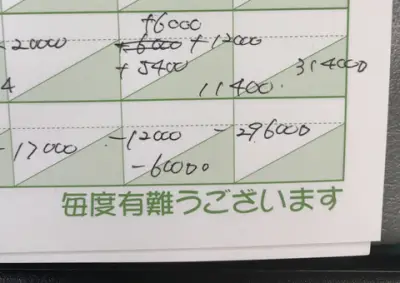 +6000
-20000 +6000 +12000
+5400 314000
4 11400.
-17000 -12000 -296000
-60000
毎度有難うございます